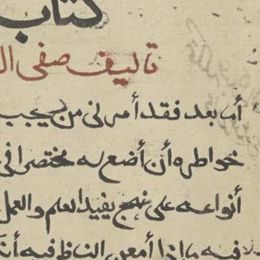 كتاب
تاليف صفى ال
أما بعد فقد أمرنى من يجب
خواطره أن أضع له مختصرا فى
أنواعه على نهج يفيد العلم والعمل
فيه ما اذا أمعن الناظر فيه